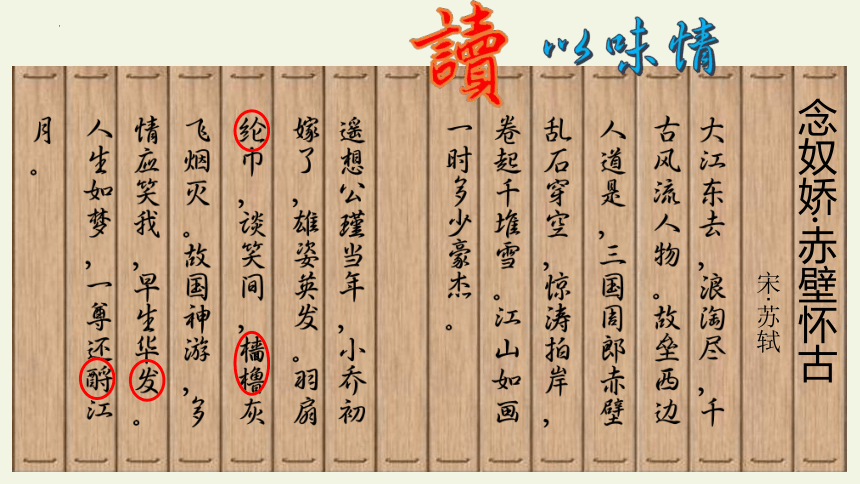 讀 以味情
念奴娇·赤壁怀古
宋·苏轼
大江东去,浪淘尽,千
古风流人物。故垒西边
人道是,三国周郎赤壁
乱石穿空,惊涛拍岸,
卷起千堆雪。江山如画
一时多少豪杰。
遥想公瑾当年,小乔初
嫁了,雄姿英发。羽扇
纶巾,谈笑间,樯橹灰
飞烟灭。故国神游,多
情应笑我,早生华发。
人生如梦,一尊还酹江
月。